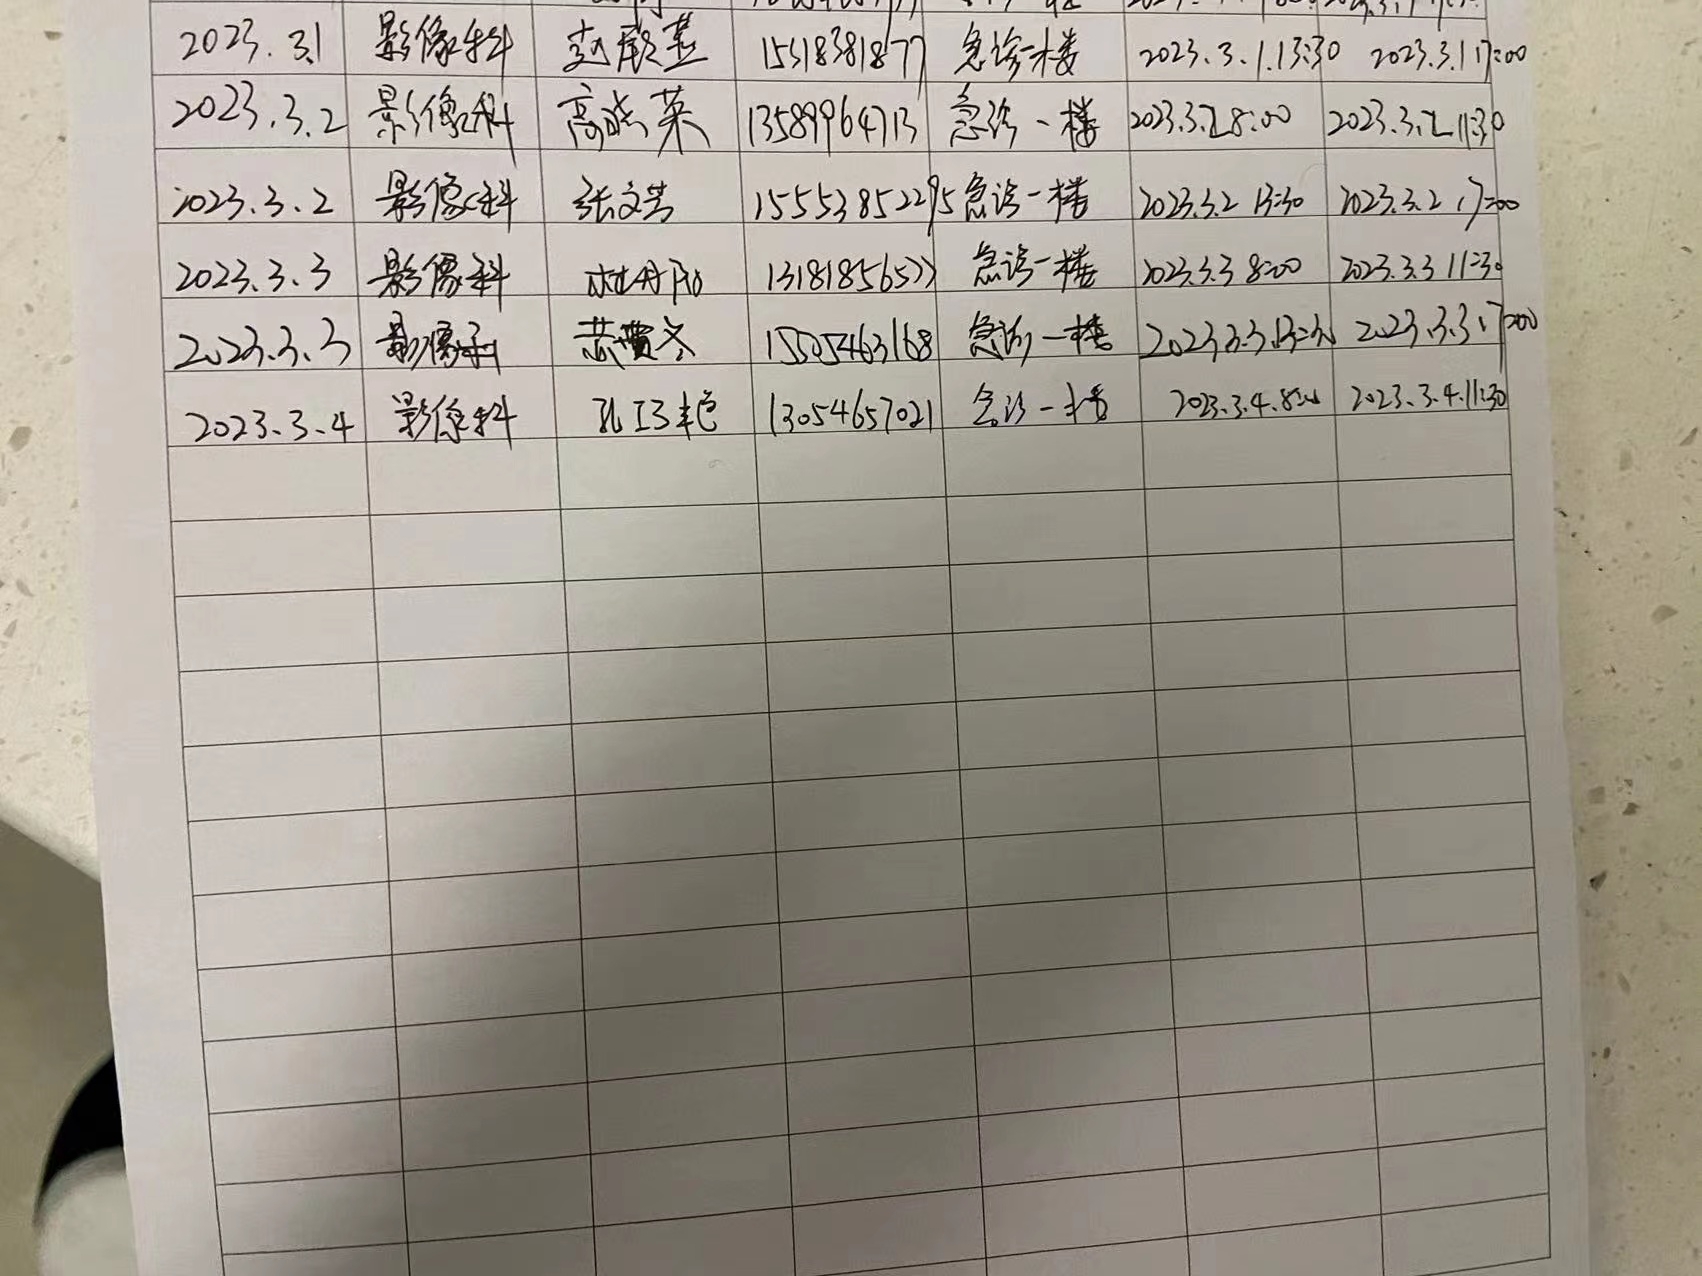 2023.3.1 影像科 赵 15318381877 急诊一楼 2023.3.1.13:30 2023.3.1 17:00
2023.3.2 影像科 高晓英 13589964713 急诊一楼 2023.3.2 8:00 2023.3.2 11:30
2023.3.2 影像科 张文芸 15553852295 急诊一楼 2023.3.2 13:30 2023.3.2 17:00
2023.3.3 影像科 13181856577 急诊一楼 2023.3.3 8:00 2023.3.3 11:30
2023.3.3 影像科 15505463168 急诊一楼 2023.3.3 13:30 2023.3.3.17:00
2023.3.4 影像科 孔卫艳 13054657021 急诊一楼 2023.3.4.8:00 2023.3.4.11:30